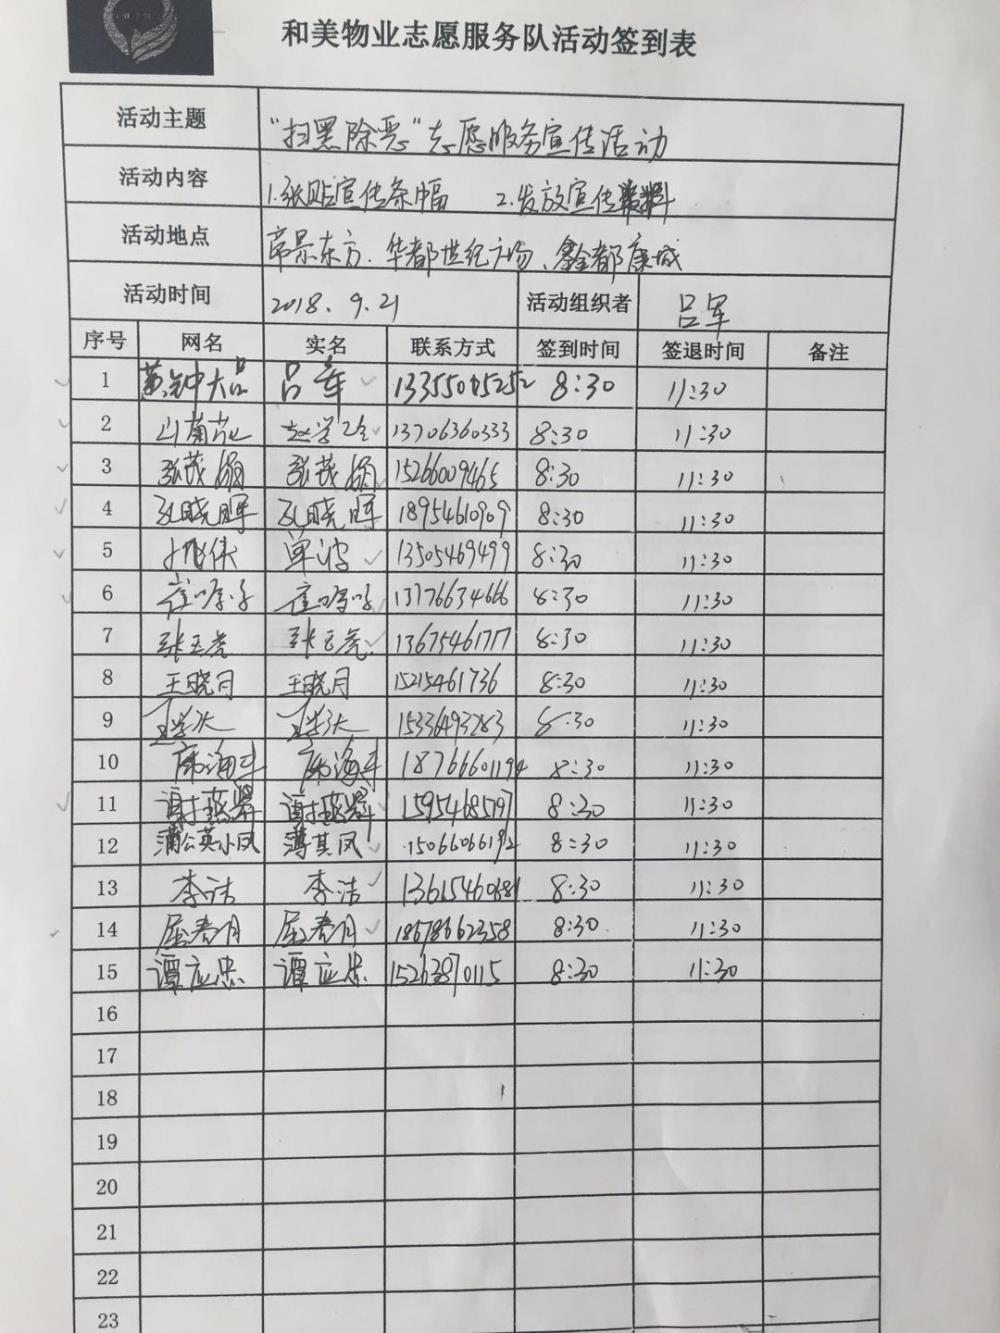 和美物业志愿服务队活动签到表
活动主题 "扫黑除恶"志愿服务宣传活动
活动内容 1.张贴宣传条幅 2.发放宣传材料
活动地点 帝景东方、华都世纪广场、鑫都康城
活动时间 2018.9.21 活动组织者 吕军
序号 网名 实名 联系方式 签到时间 签退时间 备注
1 黄钟大吕 吕军 13355015252 8:30 11:30
2 山菊花 13706360333 8:30 11:30
3 张茂娟 张茂娟 15266009465 8:30 11:30
4 孔晓晖 孔晓晖 18954610909 8:30 11:30
5 单波 13505469499 8:30 11:30
6 13776634666 8:30 11:30
7 张玉亮 张玉亮 13675461717 8:30 11:30
8 王晓月 王晓月 15215461736 8:30 11:30
9 15336493283 8:30 11:30
10 席海丰 席海丰 18766601194 8:30 11:30
11 8:30 11:30
12 蒲公英小凤 薄其凤 15066066192 8:30 11:30
13 李洁 李洁 8:30 11:30
14 屈春月 屈春月 18678662358 8:30 11:30
15 谭应忠 谭应忠 15263870115 8:30 11:30
16
17
18
19
20
21
22
23